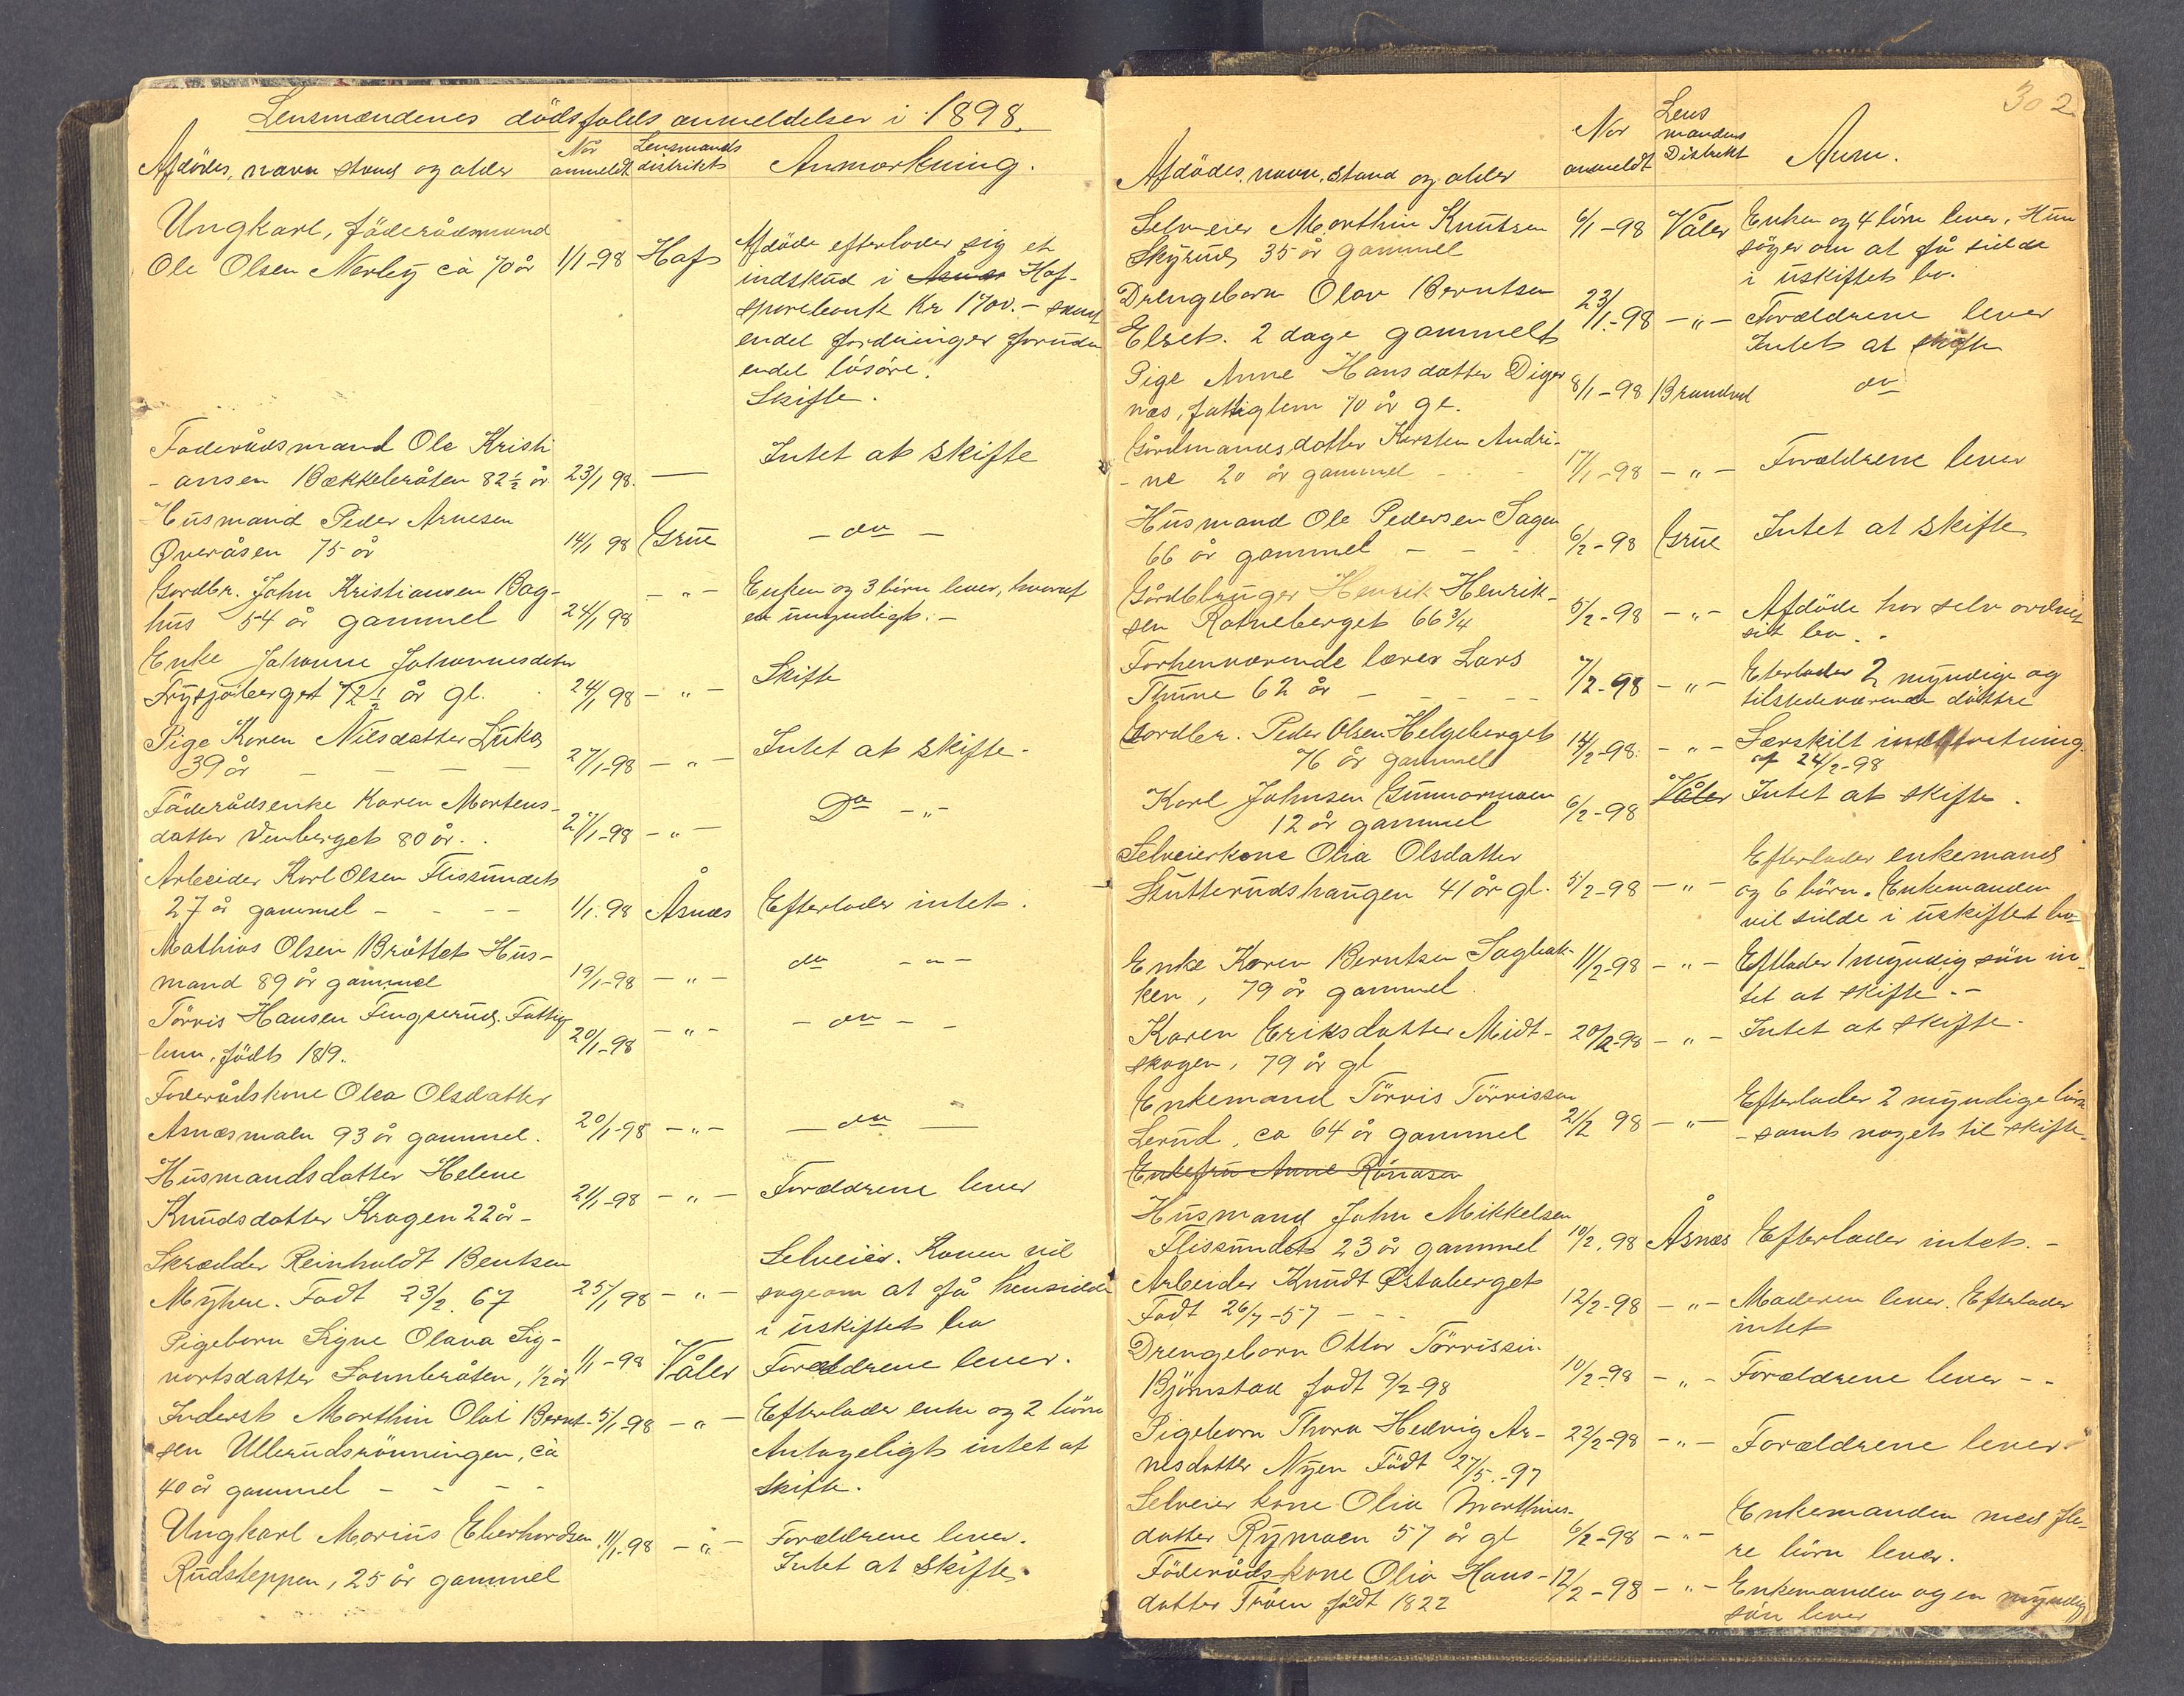 Lensmændenes dödsfalds anmeldelser i 1898.
Afdödes, navn stand og alder
Når anmeldt
Lensmands distrikt
Anmærkning.
Ungkarl, föderådsmand
Ole Olsen Nerby ca 70 år 1/1-98 Hof
Afdöde efterlader sig et
indskud i Åsnes Hof-
sparebank Kr 1700.- samt
endel fordringer foruden
endel lösöre.
Skifte.
Foderådsmand Ole Kristi
- ansen Bækkebråten 82 1/2 år 23/1 98. — Intet at skifte
Husmand Peder Arnesen
Överåsen 75 år 14/1 98 Grue - do -
Gårdbr. John Kristiansen Bag-
hus 54 år gammel 24/1 98 - " - Enken og 3 börn lever, hvoraf
et umyndigt. -
Enke Johanne Johannesdatter
Frysjøberget 72 1/2 år gl. 24/1 98 - " - Skifte
Pige Karen Nilsdatter Lukas
39 år - - - - 27/1-98 - " - Intet at skifte.
Föderådsenke Karen Mortens-
datter Venberget 80 år. . 27/1-98 - " - Do - " -
Arbeider Karl Olsen Flissundet
27 år gammel - - - - 1/1.98 Åsnæs Efterlader intet.
Mathias Olsen Bråttet Hus-
mand 89 år gammel 19/1-98 - " - do - " -
Törris Hansen Fingserud. Fattig
lem, födt 1819. 20/1-98 - " - - do - -
Foderådskone Olea Olsdatter
Asnæsmoen 93 år gammel. 20/1-98 - " - - do -
Husmandsdatter Helene
Knudsdatter Kragen 22 år - 21/1-98 - " - Forældrene lever
Skrædder Reinholdt Bentsen
Myhre. Födt 23/2. 67 25/1 98 - " -
Selveier. Konen vil
søge om at få hensidde
i uskiftet bo
Pigebarn Signe Olava Sig-
vartsdatter Sonnbråten, 1/2 år 1/1-98 Våler Forældrene lever.
Inderst Morthin Olai Bernt- 5/1-98 - " - Efterlader enke og 2 börn
sen Ullerudsrönningen, ca Antageligt intet at
40 år gammel - - - - skifte.
Ungkarl Marius Eberhardsen 11/1-98 - " - Forældrene lever.
Rudsteppen, 25 år gammel Intet at skifte.
302
Afdödes, navn, stand og alder
Når anmeldt
Lens mandens Distrikt
Anm.
Selveier Morthin Knutsen 6/1-98 Våler Enken og 4 börn lever. Hun
Skyrud 35 år gammel söger om at få sidde
i uskiftet bo.
Drengebarn Olav Berntsen
Elset. 2 dage gammelt 23/1-98 - " - Forældrene lever
Intet at skifte
Pige Anne Hansdatter Diger
næs, fattiglem 70 år gl. 8/1-98 Brandval do
Gårdmandsdatter Kirsten Andri-
- ne 20 år gammel - - 17/1-98 - " - Forældrene lever
Husmand Ole Pedersen Sagen
66 år gammel - - - 6/2-98 Grue Intet at skifte
Gårdbruger Henrik Henrik-
sen Rotneberget 66 3/4 5/2-98 - " - Afdöde har selv ordnet
sit bo. .
Forhenværende lærer Lars
Thune 62 år - - - - 7/2-98 - " - Eterlader 2 myndige og
tilstedeværende döttre
Gårdbr. Peder Olsen Helgeberget
76 år gammel 14/2-98. - " - Særskilt indberetning
af 24/2-98
Karl Johnsen Gunnarmoen
12 år gammel 6/2-98 Våler Intet at skifte.
Selveierkone Olia Olsdatter
Stutterudshaugen 41 år gl. 5/2-98 - " -
Efterlader enkemand
og 6 börn. Enkemanden
vil sidde i uskiftet bo
Enke Karen Berntsen Sagbak-
ken, 79 år gammel. 11/2-98 - " - Eftlader 1 myndig sön in-
tet at skifte. -
Karen Eriksdatter Midt-
skogen, 79 år gl 20/2-98 - " - Intet at skifte.
Enkemand Törris Törrissen
Lerud, ca 64 år gammel 21/2 98 - " - Efterlader 2 myndige börn
- samt noget til skifte-
Enkefru Anne Rönåsen
Husmand John Mikkelsen
Flissundet 23 år gammel 10/2.98 Åsnæs Efterlader intet. -
Arbeider Knudt Østaberget
Födt 26/7-57 - - 12/2-98 - " - Moderen lever. Efterlader
intet
Drengebarn Ottar Törrissen
Björnstad födt 9/2-98 10/2-98 - " - Forældrene lever - -
Pigebarn Thora Hedvig Ar-
nesdatter Nyen Födt 27/5.-97 22/2-98 - " - Forældrene lever.
Selveier kone Olia Morthins-
datter Rymoen 57 år gl 6/2-98 - " - Enkemanden med fle-
re börn lever.
Föderådskone Olia Hans-
datter Tröen födt 1822 12/2-98 - " - Enkemanden og en myndig
sön lever